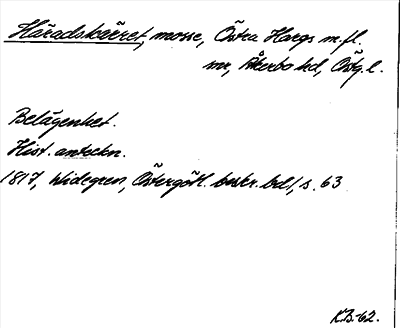 Häradskärret, mosse, Östra Hargs m.fl.
snr, Åkerbo hd, Östg. l.
Belägenhet.
Hist. anteckn.
1817, Widegren, Östergötl. beskr. bd 1, s. 63
K.B.-62.